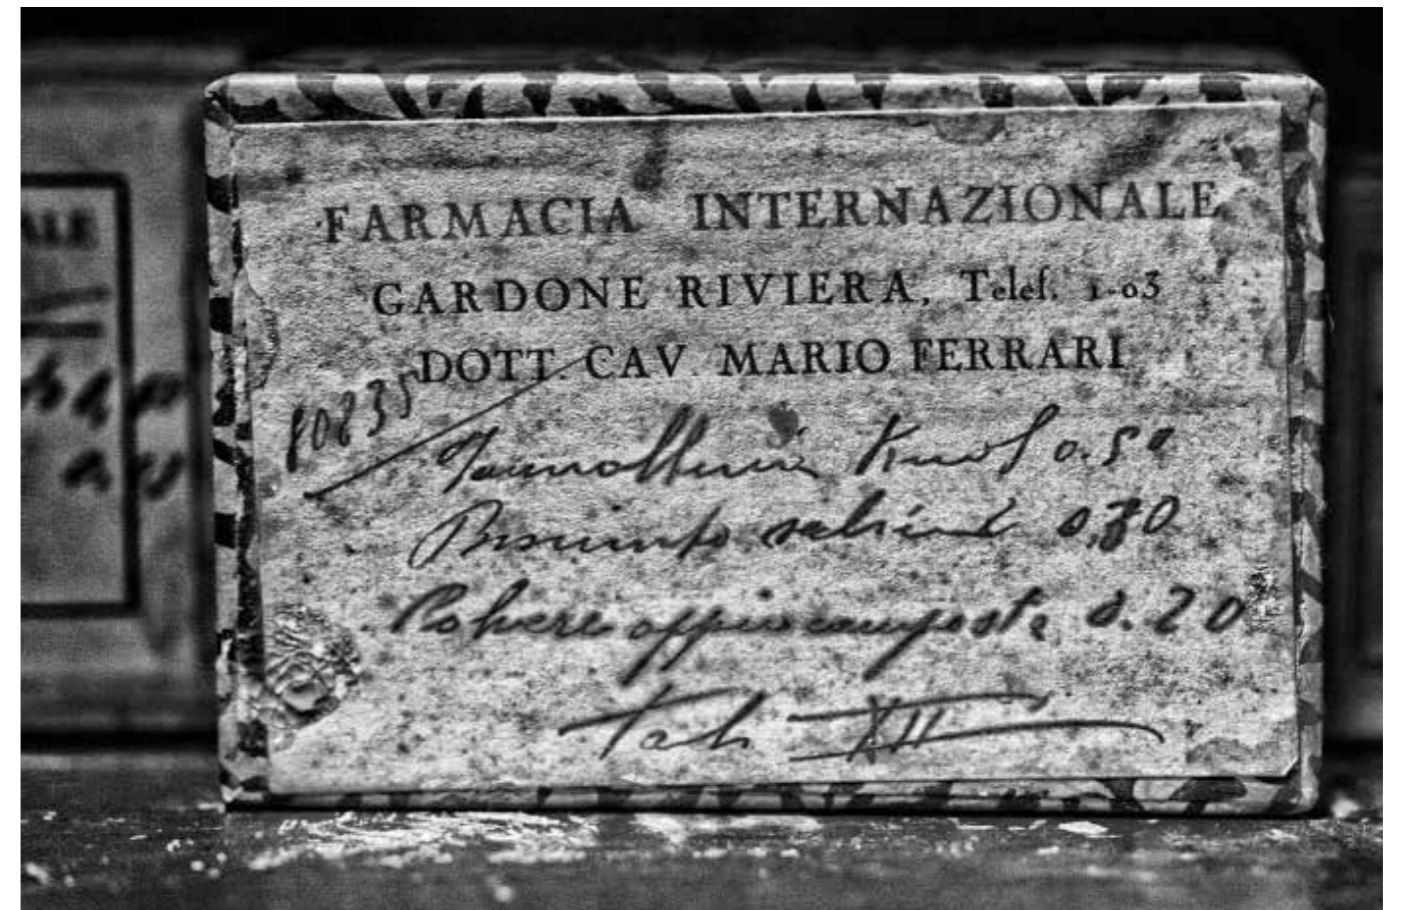 FARMACIA INTERNAZIONALE
GARDONE RIVIERA, Telef. 1-03
DOTT. CAV. MARIO FERRARI
80835
Knol 0.50
Bismuto salicil 0,30
Polvere oppio composta 0.20
Tali XII